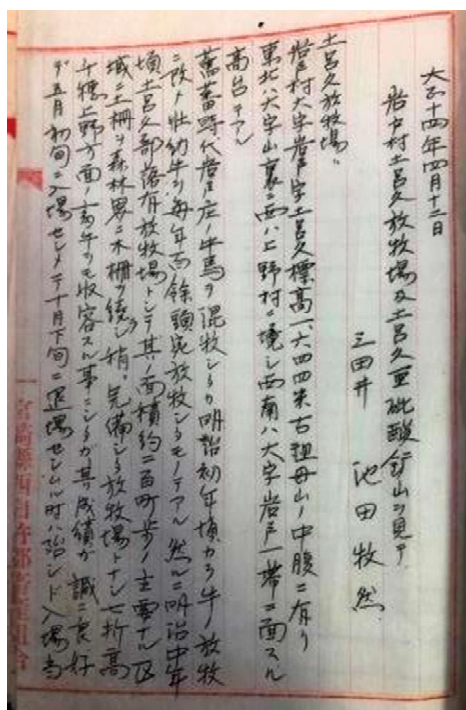 大正十四年四月十二日
岩戸村土呂久放牧場及土呂久亜砒酸鉱山ヲ見テ
三田井 池田牧然
土呂久放牧場ハ
岩戸村大字岩戸字土呂久標高一、六四四米古祖母山ノ中腹ニ有リ
東北ハ大字山裏ニ西ハ上野村ニ境シ西南ハ大字岩戸一帯ニ面スル
高台デアル
舊藩時代岩戸庄ノ牛馬ヲ混牧シタルガ明治初年頃カラ牛ノ放牧
ニ改メ牡幼牛ヲ毎年百餘頭宛放牧シタモノデアル 然ルニ明治中年
頃土呂久部落有放牧場トシテ其ノ面積約二百町歩ノ主要ナル区
域ニ土柵ヲ森林界ニ木柵ヲ繞シ稍々完備シタ放牧場トナシ七折高
千穂上野方面ノ畜牛ヲモ収容スル事ニシタガ其ノ成績ガ誠ニ良好
デ五月初旬ニ入場セシメテ十月下旬ニ退場セシムル時ハ殆ンド入場当
宮崎縣西臼杵郡畜産組合